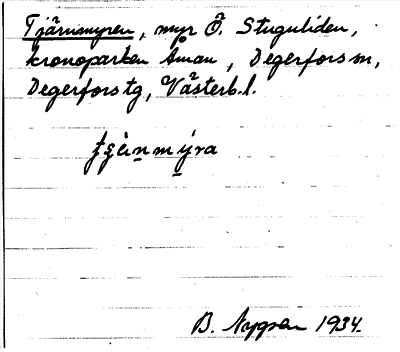 Tjärnmyren, myr Ö. Stuguliden,
kronoparken Åman, Degerfors sn,
Degerfors tg, Västerb.l.
B. Nygren 1934.